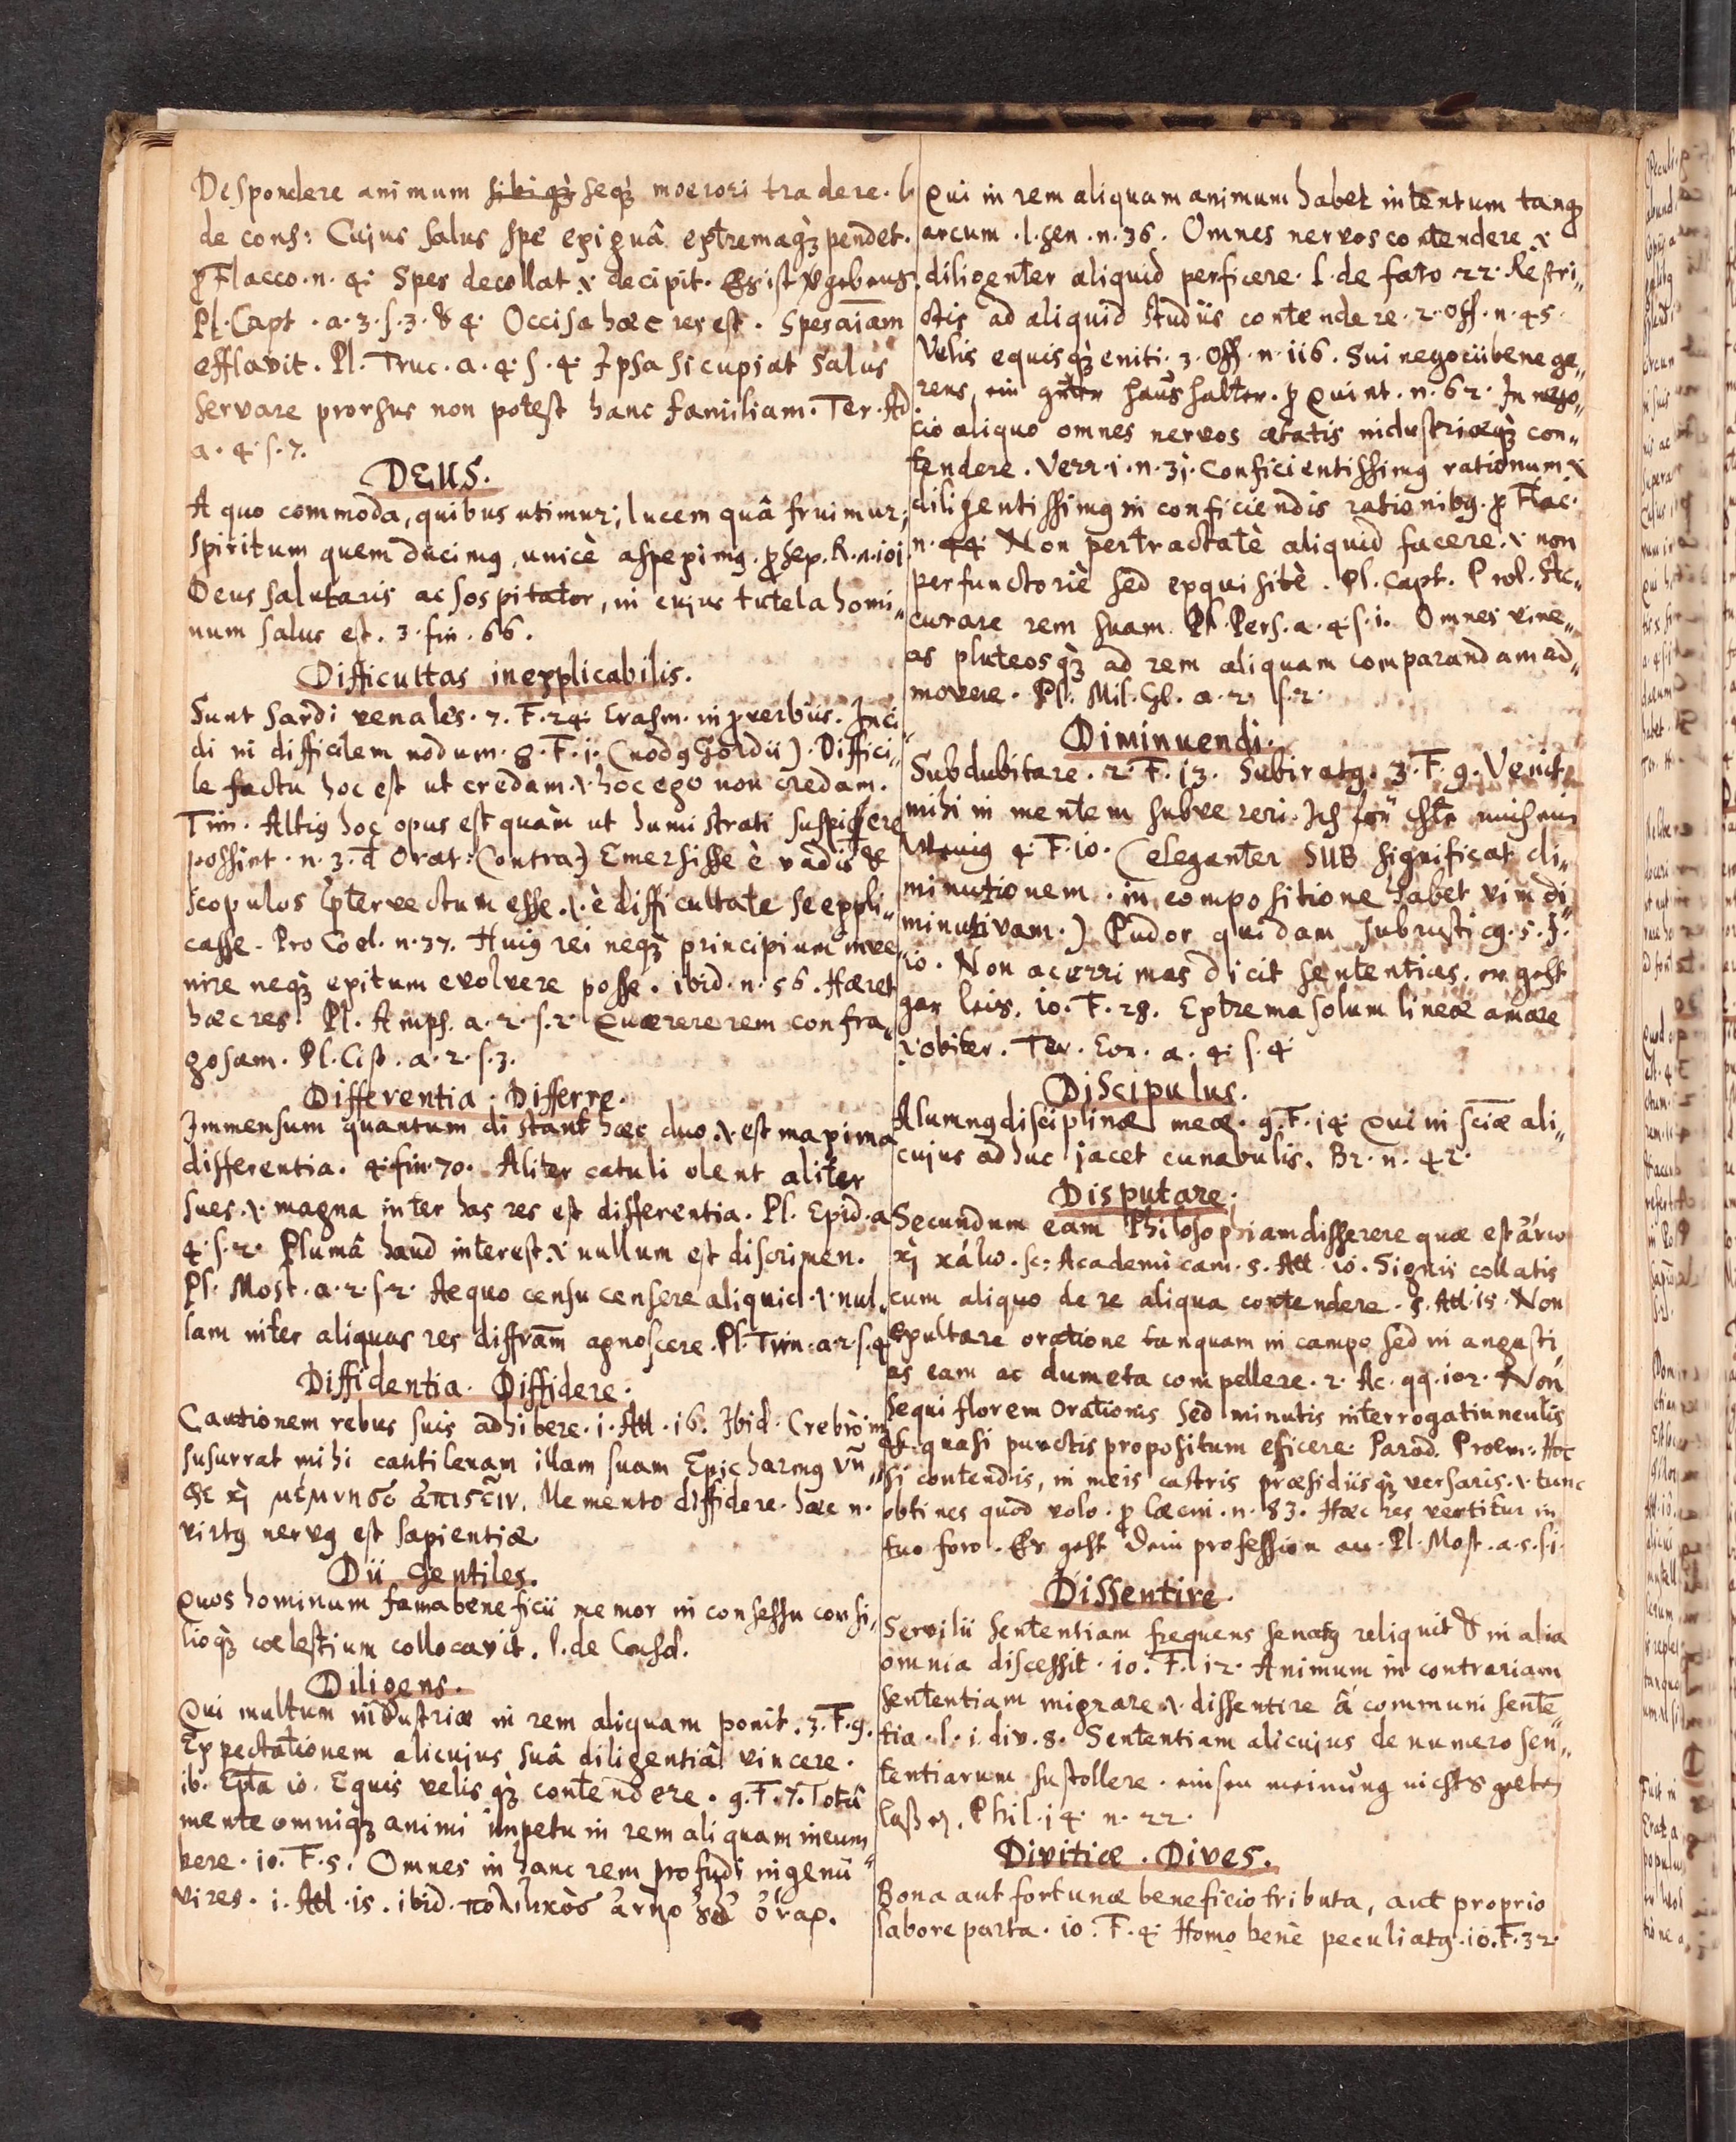 Despondere animum sibiq́; seq́; moerori tradere. l
de cons: Cujus salus spe exiguâ extremaq́; pendet.
p Flacco. n. 4. Spes decollat .i. decipit. Es ist vergebens.
Pl. Capt. a. 3. s. 3. & 4. Occisa hæc res est. Spes aīam
efflavit. Pl. Truc. a. 4. s. 4. Ipsa si cupiat Salus
servare prorsus non potest hanc familiam. Ter. Ad
a. 4. s. 7.
DEUS.
A quo commoda, quibus utimur; lucem quâ fruimur;
spiritum quem ducimq, unicè aspeximq. p Sex. R. n. 101.
Deus salutaris ac sospitator, in cujus tutela homi„
num salus est. 3. fin. 66.
Difficultas inexplicabilis.
Sunt Sardi venales. 7. F. 24. Erasm. in pverbiis. Inci„
di in difficilem nodum. 8. F. 1. (nodq Gordii). Diffici„
le factu hoc est ut credam .i. hoc ego non credam.
Tim. Altiq hoc opus est quàm ut humi strati suspicere
possint. n. 3. d Orat: Contra) Emersisse è vadis &
scopulos p̄tervectum esse .i. è difficultate se expli„
casse. Pro Coel. n. 37. Huiq rei neq́; principium inve„
nire neq́; exitum evolvere posse. ibid. n. 56. Hæret
hæc res. Pl. Amph. a. 2. s. 2. Quærere rem confra„
gosam. Pl. Cist. a. 2. s. 3.
Differentia. Differre.
Immensum quantum distant hæc duo .i. est maxima
differentia. 4. fin. 70. Aliter catuli olent aliter
sues .i. magna inter has res est differentia. Pl. Epid. a
4. s. 2. Plumâ haud interest .i. nullum est discrimen.
Pl. Most. a. 2. s. 2. Aequo censu censere aliquid .i. nul„
lam inter aliquas res diffr̄am agnoscere. Pl. Trin. a. 2. s. 4
Diffidentia. Diffidere.
Cautionem rebus suis adhibere. 1. Att. 16. Ibid. Crebrò m
susurrat mihi cantilenam illam suam Epicharmq vn̄
φε κ μέμνησό ἀπιςεῖν. Memento diffidere. hæc n.
virtq nervq est sapientiæ
Dii Gentiles.
Quos hominum fama beneficii memor in consessu consi„
lioq́; coelestium collocavit. l. de Consol.
Diligens.
Qui multum industriæ in rem aliquam ponit. 3. F. 9.
Expectationem alicujus suâ diligentiâ vincere.
ib. Ep̄ta 10. Equis velisq́; contendere. 9. F. 7. Totâ
mente omniq́; animi impetu in rem aliquam incum„
bere. 10. F. 5. Omnes in hanc rem profudi ingenii
vires. 1. Att. 15. ibid. πολιτικὸς ἀνὴρ ȣδ' ὄναρ.
Qui in rem aliquam animum habet intentum tanq
arcum. l. sen. n. 36. Omnes nervos contendere .i.
diligenter aliquid perficere. l. de fato 22. Restri„
ctis ad aliquid studiis contendere. 2. Off. n. 45.
Velis equisq́; eniti. 3. Off. n. 116. Sui negocii bene ge„
rens, ein guter Haushalter. p Quint. n. 62. In nego„
cio aliquo omnes nervos ætatis industriæq́; con„
tendere. Verr. 1. n. 31. Conficientissimq rationum .i.
diligentissimq in conficiendis rationibq. p Flac.
n. 44. Non pertractatè aliquid facere .i. non
perfunctoriè sed exquisitè. Pl. Capt. Prol. Ac„
curare rem suam. Pl. Pers. a. 4. s. 1. Omnes vine„
as pluteosq́; ad rem aliquam comparandam ad„
movere. Pl. Mil. Gl. a. 2. s. 2.
Diminuendi.
Subdubitare. 2. F. 13. Subiratq. 3. F. 9. Venit
mihi in mentem subvereri. Ich förchte mich ein
wenig 4. F. 10. (eleganter SUB significat di„
minutionem. in compositione habet vim di„
minutivam.) Pudor quidam subrusticq. 5. F.
10. Non acerrimas dicit sententias. er geht
gar leis. 10. F. 28. Extrema solum lineæ amare
.i. obiter. Ter. Eun. a. 4. s. 4.
Discipulus.
Alumnq disciplinæ meæ. 9. F. 14. Qui in sciæ ali„
cujus adhuc jacet cunabulis. Br. n. 42.
Disputare.
Secundum eam Philosophiam disserere quæ est ἄνω
κ κάτω. sc: Academicam. 5. Att. 10. Signis collatis
cum aliquo de re aliqua contendere. 5. Att. 15. Non
exultare oratione tanquam in campo sed in angusti„
as eam ac dumeta compellere. 2. Ac. qq. 102. Non
sequi florem orationis sed minutis interrogatiunculis
& quasi punctis propositum efficere. Parad. Proem: Hoc
si contendis, in meis castris præsidiisq́; versaris .i. tunc
obtines quod volo. p Cæcin. n. 83. Hæc res vertitur in
tuo foro. Er geht dein profession an. Pl. Most. a. 5. s. 1.
Dissentire.
Servilii sententiam frequens senatq reliquit & in alia
omnia discessit. 10. F. 12. Animum in contrariam
sententiam migrare .i. dissentire â communi senten„
tia. l. 1. div. 8. Sententiam alicujus de numero sen„
tentiarum sustollere. einsen meinung nichts gelten
lassen. Phil. 14. n. 22.
Divitiæ. Dives.
Bona aut fortunæ beneficio tributa, aut proprio
labore parta. 10. F. 4. Homo bene peculiatq. 10. F. 32.